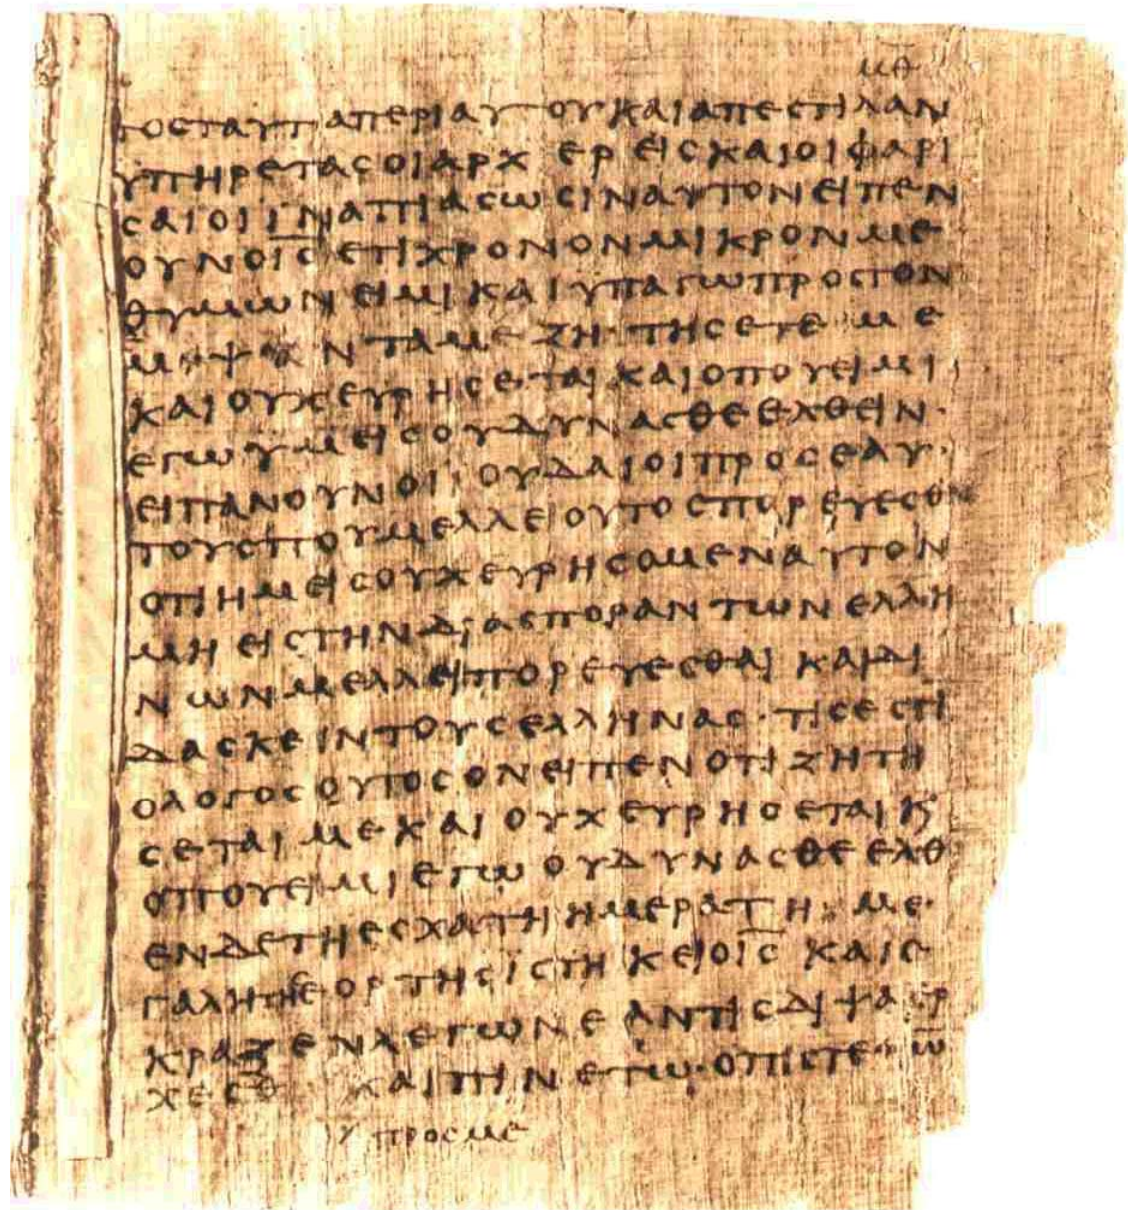 μθ
τοσταυταπεριαυτουκαιαπεστιλαν
υπηρετασοιαρχερεισκαιοιφαρι
σαιοιιναπιασωσιναυτονειπεν
ουνοι̅σ̅ετιχρονονμικρονμε
θυμωνειμικαιυπαγωπροστον
με ζη τησετε με
καιουχευρησεταικαιοπουειμι
εγωυμεισουδυνασθεελθειν·
ειπανουνοιιουδαιοιπροσεαυ·
τουσπουμελλειουτοσπορευεσθαι
οτιημεισουχευρησομεναυτον
μηειστηνδιασπορανττωνελλη
νωνμελλειπορευεσθαικαιδι
δασκειντουσελληνασ·τισεστι
ολογοσουτοσονειπενοτιζητη
σεταιμεκαιουχευρησεταικ
οπουειμιεγωουδυνασθεελθ
ενδετηεσχατηημερατημε·
γαλητησεορτησιστηκειοι̅σ̅καιε
κραζενλεγωνεαντισδιψαερ
χεσθ καιπινετω·οπιστε ω
προσμε